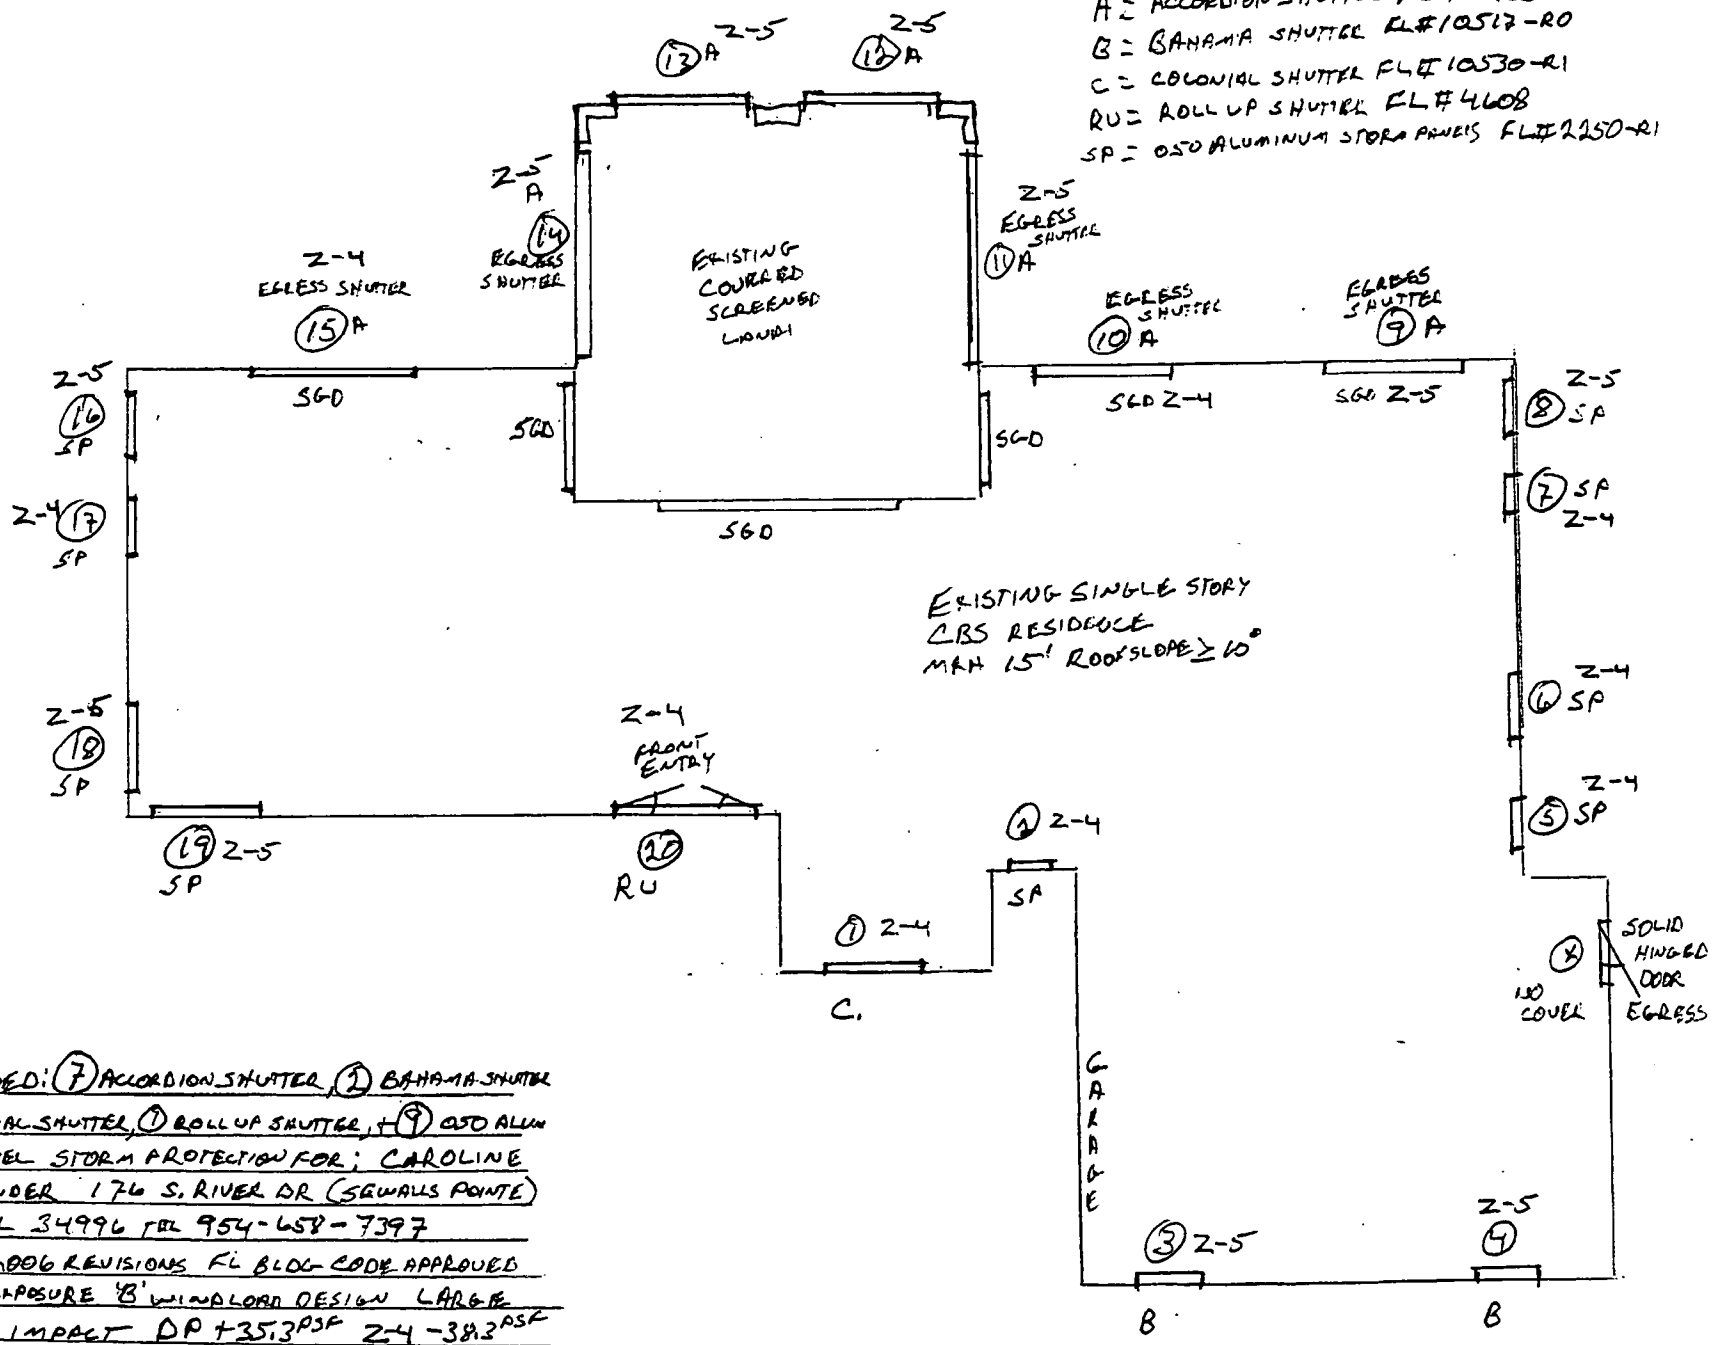 A = ACCORDION SHUTTER
B = BAHAMA SHUTTER FL#10517-R0
C = COLONIAL SHUTTER FL#10530-R1
RU = ROLL UP SHUTTER FL#4608
SP = 050 ALUMINUM STORM PANELS FL#2250-R1
Z-5
13 A
Z-5
12 A
Z-5
A
14
EGRESS
SHUTTER
Z-5
EGRESS
SHUTTER
11 A
EXISTING
COVERED
SCREENED
LANAI
Z-4
EGRESS SHUTTER
15 A
EGRESS
SHUTTER
10 A
EGRESS
SHUTTER
9 A
SGD
SGD Z-4
SGD Z-5
Z-5
16
SP
SGD
SGD
Z-5
8 SP
Z-4 17
SP
SGD
7 SP
Z-4
EXISTING SINGLE STORY
CBS RESIDENCE
MRH 15' ROOF SLOPE ≥ 10°
Z-4
6 SP
Z-5
18
SP
Z-4
FRONT
ENTRY
Z-4
5 SP
19 Z-5
SP
20
RU
2 Z-4
SP
1 Z-4
C.
X
NO
COVER
SOLID
HINGED
DOOR
EGRESS
GARAGE
3 Z-5
B
Z-5
4
B
ED: 7 ACCORDION SHUTTER, 2 BAHAMA SHUTTER
AL SHUTTER, 1 ROLL UP SHUTTER, + 9 050 ALUM
EL STORM PROTECTION FOR; CAROLINE
DER 176 S. RIVER DR (SEWALLS POINTE)
L 34996 TEL 954-658-7397
006 REVISIONS FL BLDG CODE APPROVED
XPOSURE 'B' WINDLOAD DESIGN LARGE
IMPACT DP +35.3 PSF Z-4 -38.3 PSF